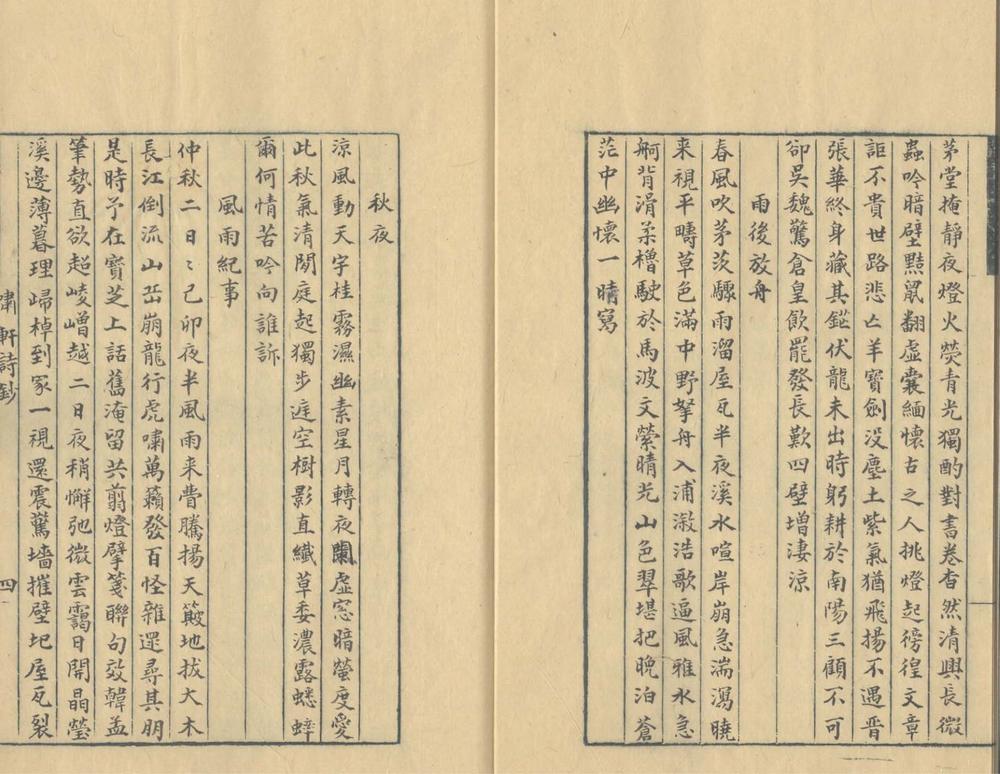 茅堂掩靜夜燈火熒青光獨酌對書卷杳然清興長微
蟲吟暗壁黠鼠翻虛囊緬懷古之人挑燈起徬徨文章
詎不貴世路悲亡羊寶劍沒塵土紫氣猶飛揚不遇晉
張華終身藏其鋩伏龍未出時躬耕於南陽三顧不可
卻吳魏驚倉皇飲罷發長歎四壁增淒涼
雨後放舟
春風吹茅茨驟雨溜屋瓦半夜溪水喧岸崩急湍瀉曉
来視平疇草色滿中野拏舟入浦溆浩歌逼風雅水急
舸背滑柔櫓駛於馬波文縈晴光山色翠堪把晚泊蒼
茫中幽懷一晴寫
秋夜
涼風動天宇桂霧濕幽素星月轉夜闌虛窓暗螢度愛
此秋氣清閒庭起獨步庭空樹影直纖草委濃露蟋蟀
爾何情苦吟向誰訴
風雨紀事
仲秋二日〻己卯夜半風雨来費騰揚天簸地拔大木
長江倒流山岳崩龍行虎嘯萬籟發百怪雜遝尋其朋
是時予在寶芝上話舊淹留共翦燈擘箋聯句效韓孟
筆勢直欲超崚嶒越二日夜稍懈弛微雲靄日開晶瑩
溪邊薄暮理歸棹到家一視還震驚墻摧壁圮屋瓦裂
嘯軒詩鈔
四